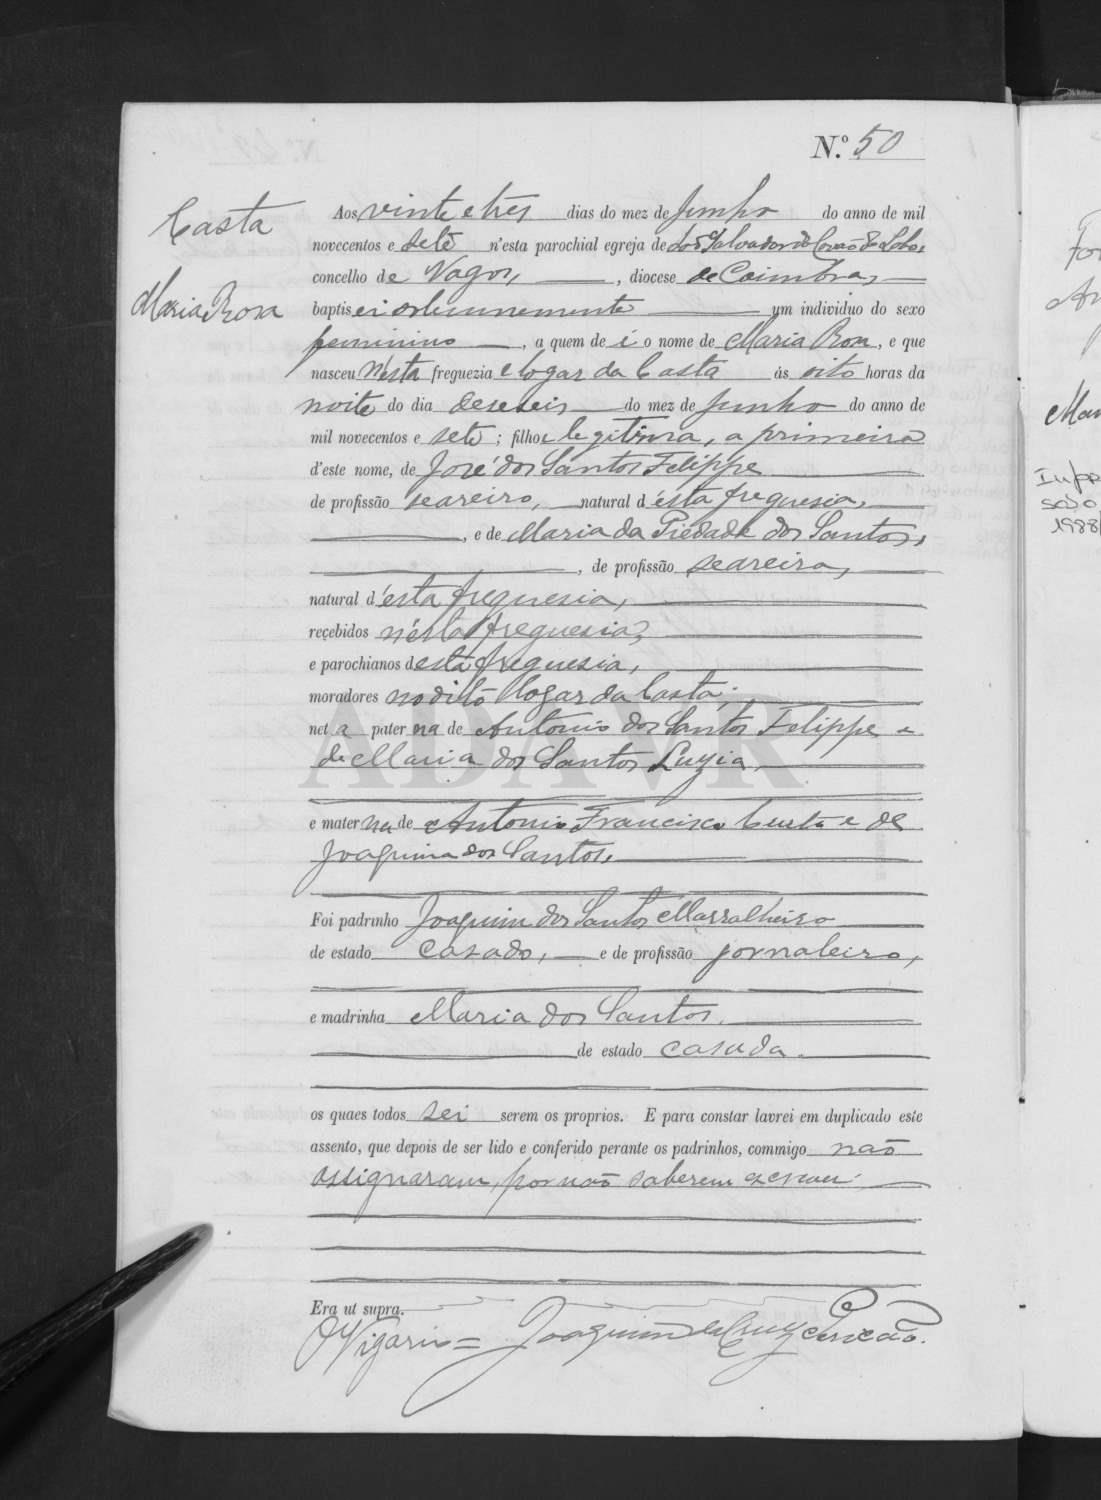 N.º 50
Casta
Maria Rosa
Aos vinte e tres dias do mez de Junho do anno de mil
novecentos e sete n'esta parochial egreja de do Salvador de Covão do Lobo,
concelho de Vagos, diocese de Coimbra,
baptisei solemnemente um individuo do sexo
feminino, a quem dei o nome de Maria Rosa, e que
nasceu n'esta freguezia e logar da Casta ás oito horas da
noite do dia deseseis do mez de Junho do anno de
mil novecentos e sete; filha legitima, a primeira
d'este nome, de José dos Santos Felippe
de profissão seareiro, natural d'ésta freguesia,
, e de Maria da Piedade dos Santos,
, de profissão seareira,
natural d'ésta freguesia,
recebidos n'ésta freguesia,
e parochianos désta freguesia,
moradores no dito logar da Casta;
neta paterna de Antonio dos Santos Felippe e
de Maria dos Santos Luzia,
e materna de Antonio Francisco Costa e de
Joaquina dos Santos,
Foi padrinho Joaquim dos Santos Marralheiro
de estado casado, e de profissão jornaleiro,
e madrinha Maria dos Santos,
de estado casada.
os quaes todos sei serem os proprios. E para constar lavrei em duplicado este
assento, que depois de ser lido e conferido perante os padrinhos, commigo não
assignaram, por não saberem escrever.
Era ut supra.
O Vigario = Joaquim da Cruz
ADAVR
1988